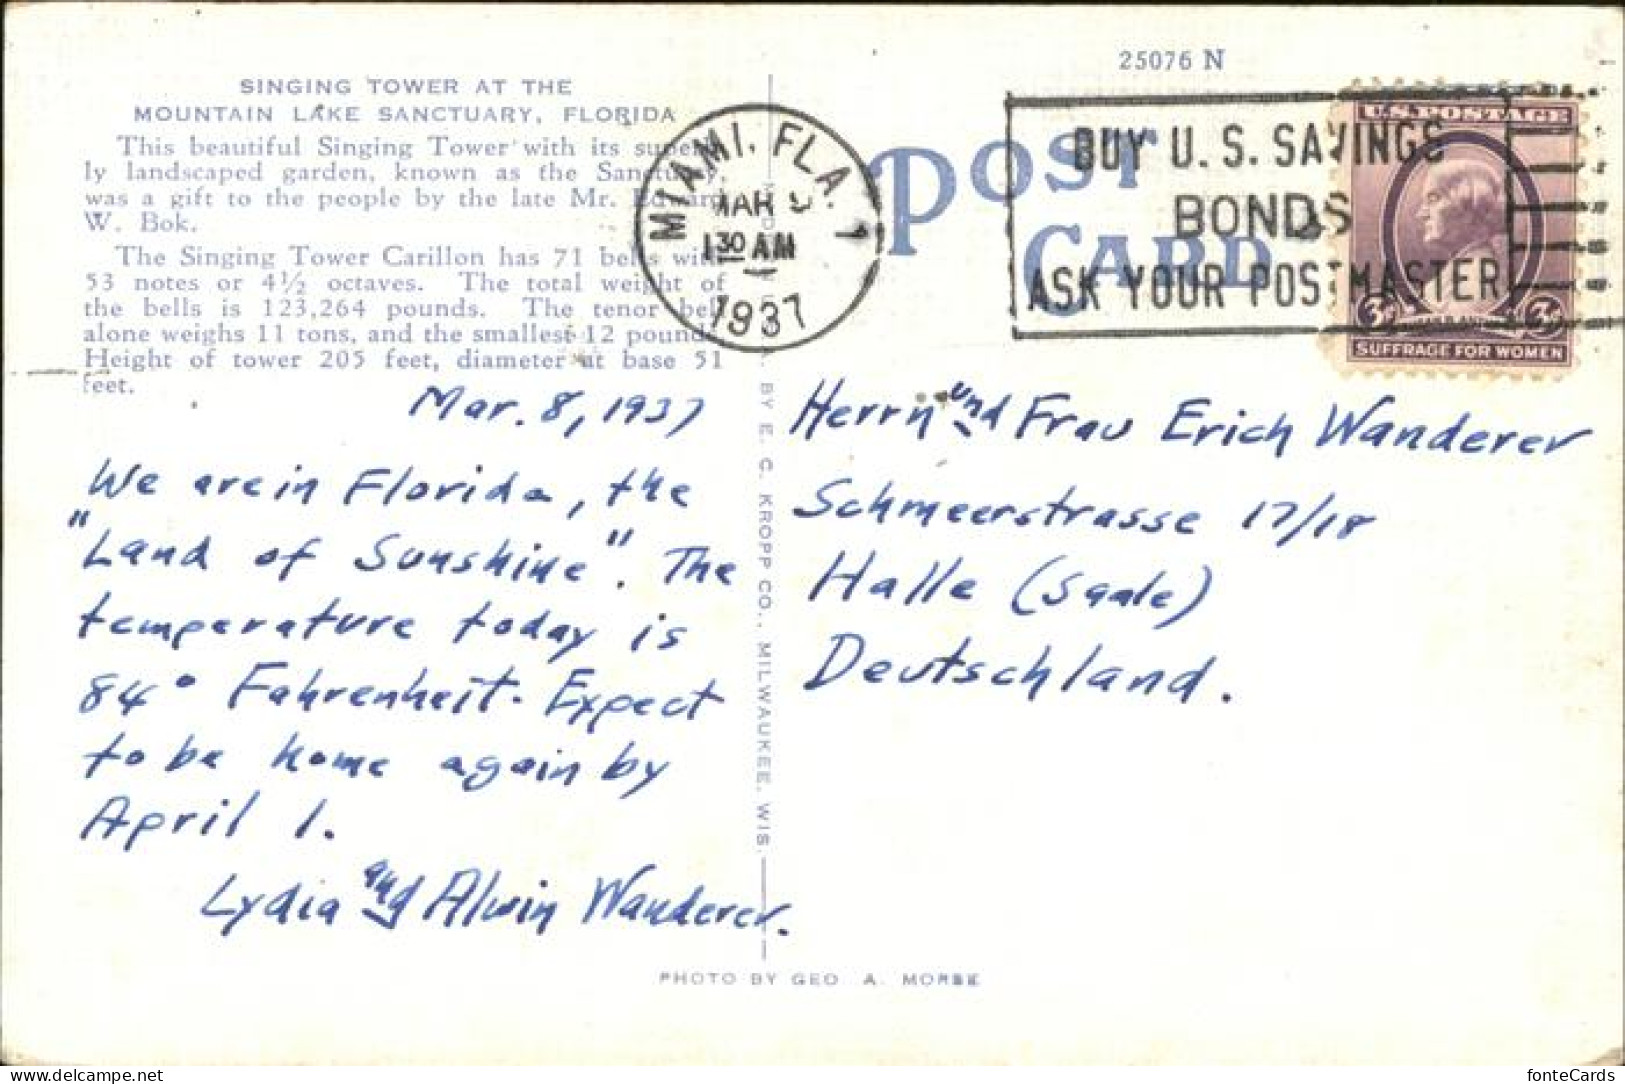 25076 N
SINGING TOWER AT THE
MOUNTAIN LAKE SANCTUARY, FLORIDA
This beautiful Singing Tower with its superb-
ly landscaped garden, known as the Sanctuary,
was a gift to the people by the late Mr. Edward
W. Bok.
The Singing Tower Carillon has 71 bells with
53 notes or 4½ octaves. The total weight of
the bells is 123,264 pounds. The tenor bell
alone weighs 11 tons, and the smallest 12 pounds.
Height of tower 205 feet, diameter at base 51
feet.
MIAMI, FLA. 1
MAR
1 30 AM
1937
POST
CARD
BUY U. S. SAVINGS
BONDS
ASK YOUR POSTMASTER
U.S. POSTAGE
3¢ 3¢
SUFFRAGE FOR WOMEN
Mar. 8, 1937
We are in Florida, the
"Land of Sunshine". The
temperature today is
84° Fahrenheit. Expect
to be home again by
April 1.
Lydia and Alwin Wanderer.
BY E. C. KROPP CO., MILWAUKEE, WIS.
Herrn und Frau Erich Wanderer
Schmeerstrasse 17/18
Halle (Saale)
Deutschland.
PHOTO BY GEO. A. MORSE
delcampe.net
fonteCards